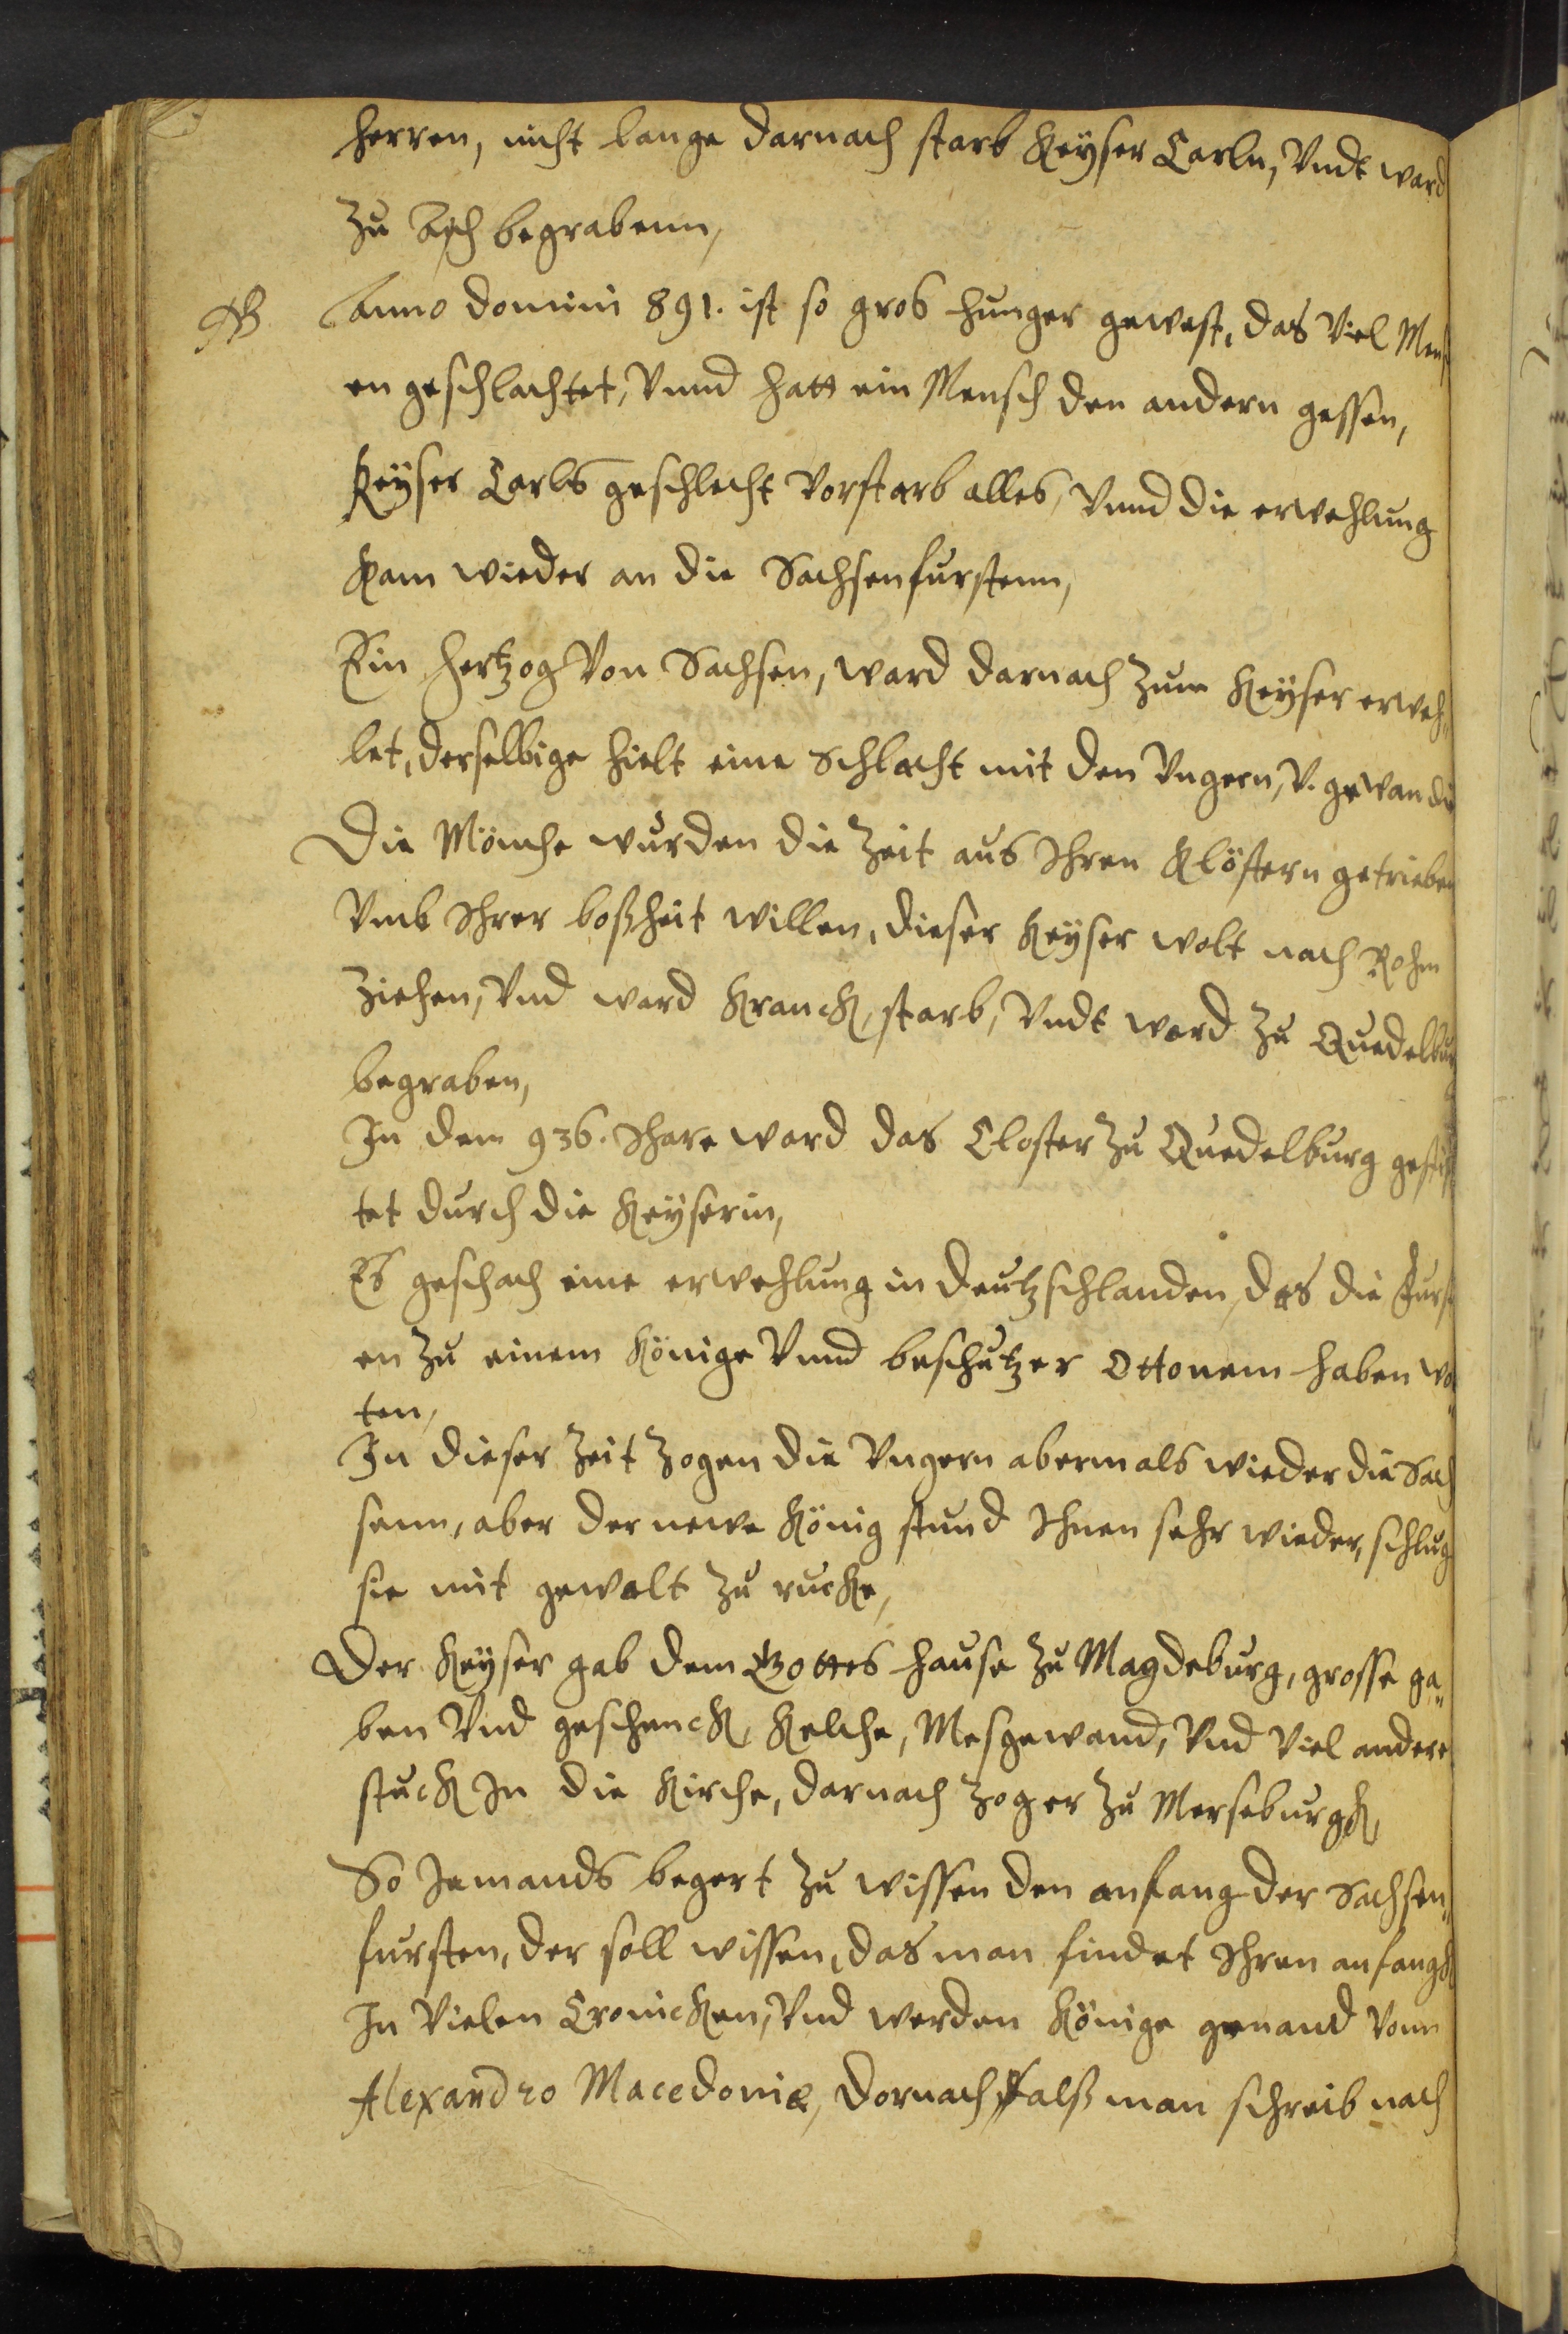 herren, nicht lange darnach starb Keÿser Carln, Vndt ward
zu Ach begrabenn,
NB Anno domini 891. ist so gros hunger gewest, das Viel Mensch
en geschlachtet, Vnnd hatt ein Mensch den andern gessen,
Keÿser Carls geschlecht Vorstarb alles, Vnnd die erwehlung
kam wieder an die Sachsenfurstenn,
Ein Hertzog Von Sachsen, ward darnach zum Keÿser erweh„
let, derselbige hielt eine Schlacht mit den Vngern, V. gewan die
Die Mönche wurden die zeit aus Ihren Klöstern getrieben
Vmb Ihrer boßheit willen, dieser Keÿser wolt nach Rohm
ziehen, Vnd ward kranck, starb, Vndt ward zu Quedelburg
begraben,
In dem 936. Ihare ward das Closter zu Quedelburg gestif
tet durch die Keÿserin,
Es geschach eine erwehlung in deutzschlanden, das die Furst
en zu einem Könige Vnnd beschutzer Ottonem haben wol
ten,
In dieser zeit zogen die Vngern abermals wieder die Sach
senn, aber der newe König stund Ihnen sehr wieder, schlug
sie mit gewalt zu rucke,
Der Keÿser gab dem Gottes hause zu Magdeburg, grosse ga„
ben Vnd geschenck, Kelche, Mesgewand, Vnd Viel andere
stuck In die Kirche, darnach zog er zu Merseburgk,
So Jemands begert zu wissen den anfang der Sachsen„
fursten, der soll wissen, das man findet Ihren anfangk
In Vielen Cronicken, Vnd werden Könige genand Vonn
Alexandro Macedoniæ, dornach alß man schreib nach